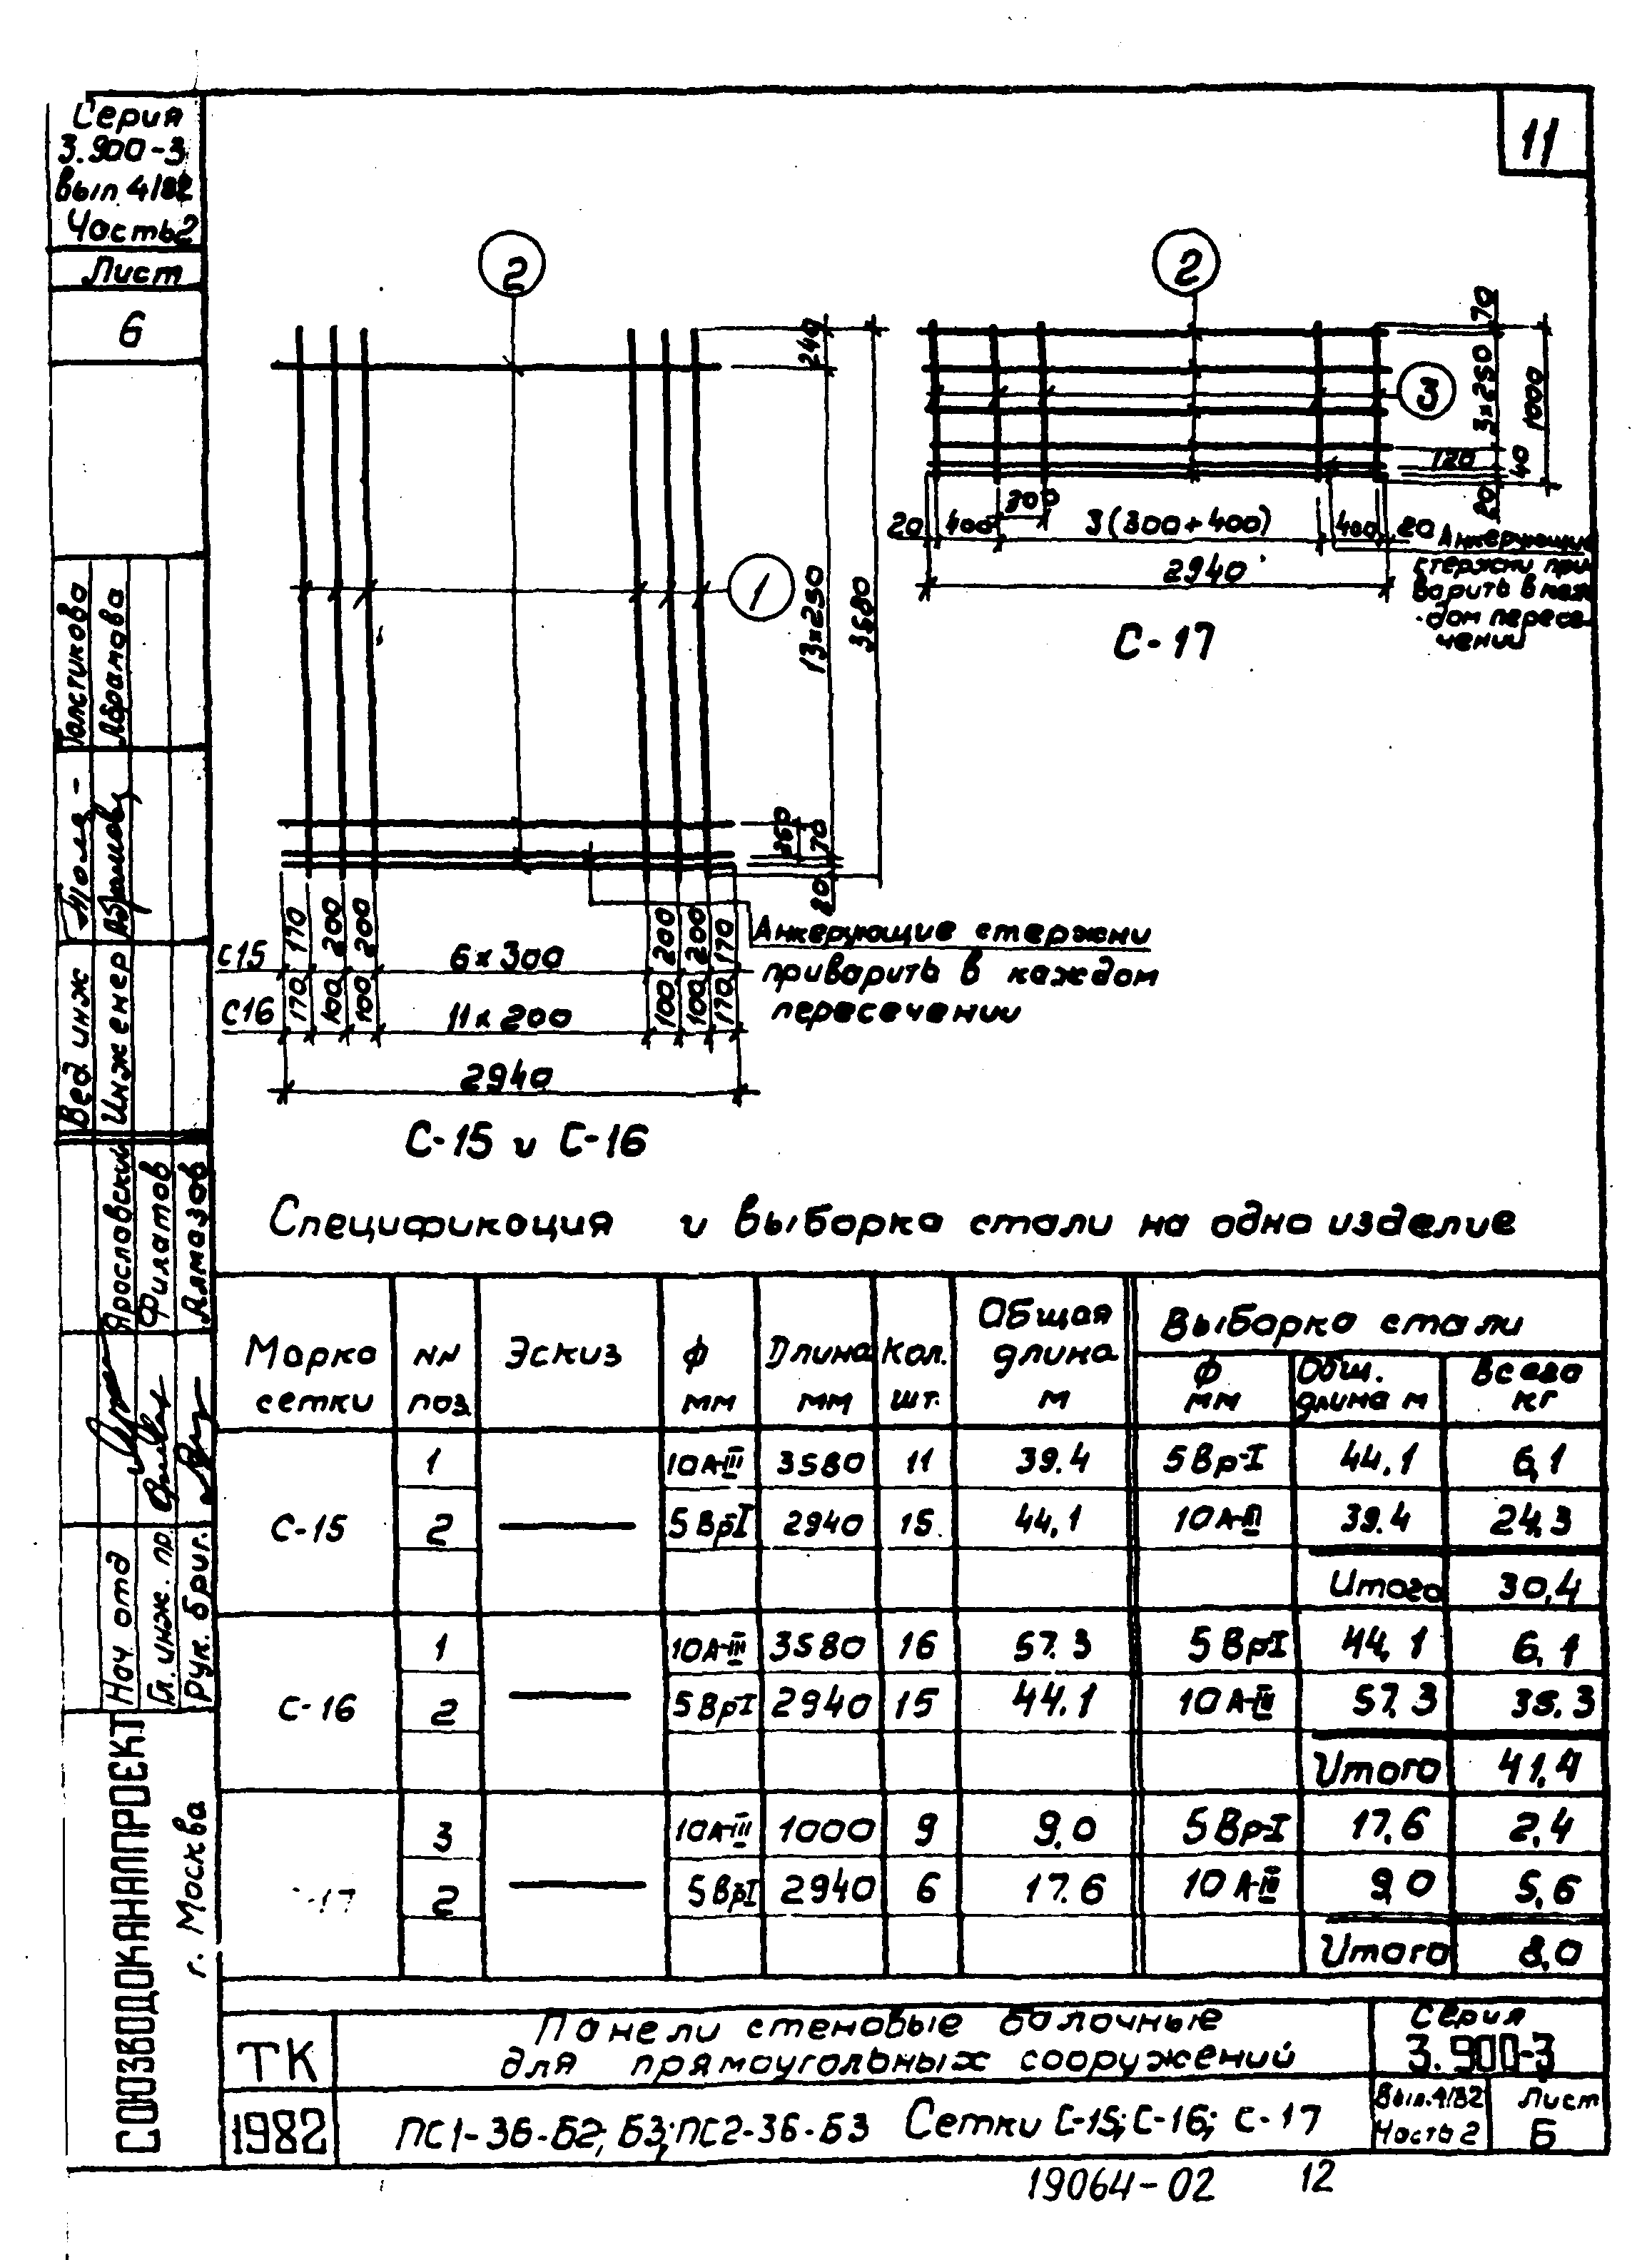 Серия
3.900-3
Вып 4/82
Часть 2
Лист
6
11
2
240
13×250
3580
1
260
70
20
С15 170 200 200 6×300 200 200 170
С16 170 100 100 11×200 100 100 170
2940
Анкерующие стержни
приварить в каждом
пересечении
С-15 и С-16
2
3
70
3×250
1000
120
40
20
300
20 400 3(300+400) 400 20
2940
Анкерующие
стержни при-
варить в каж-
дом пересе-
чении
С-17
Спецификация и выборка стали на одно изделие
Марка сетки NN поз. Эскиз ф мм Длина мм Кол. шт. Общая длина м Выборка стали
ф мм Общ. длина м Всего кг
С-15 1 10А-III 3580 11 39.4 5Вр-I 44,1 6,1
2 5ВрI 2940 15 44,1 10А-III 39.4 24,3
Итого 30,4
С-16 1 10А-III 3580 16 57.3 5ВрI 44,1 6,1
2 5Вр-I 2940 15 44.1 10А-III 57.3 35.3
Итого 41,4
-17 3 10А-III 1000 9 9,0 5Вр-I 17.6 2,4
2 5ВрI 2940 6 17.6 10А-III 9,0 5,6
Итого 8,0
Вед инж Толстикова
Инженер Абрамова
Нач. отд Ярославский
Гл. инж. пр. Филатов
Рук. бриг. Алмазов
СОЮЗВОДОКАНАЛПРОЕКТ
г. Москва
ТК
1982
Панели стеновые балочные
для прямоугольных сооружений
ПС1-36-Б2; Б3; ПС2-36-Б3 Сетки С-15; С-16; С-17
Серия
3.900-3
Вып.4/82
Часть 2
Лист
6
19064-02 12